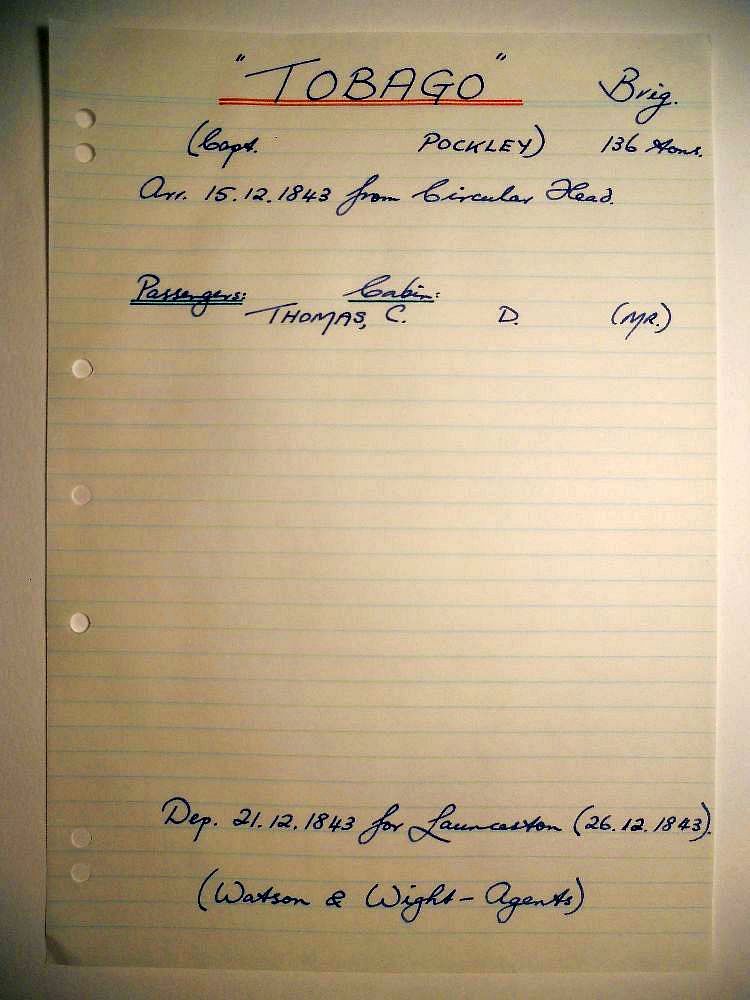 "TOBAGO" Brig.
(Capt. POCKLEY) 136 tons.
Arr. 15.12.1843 from Circular Head.
Passengers: Cabin:
THOMAS, C. D. (MR.)
Dep. 21.12.1843 for Launceston (26.12.1843).
(Watson & Wight - Agents)